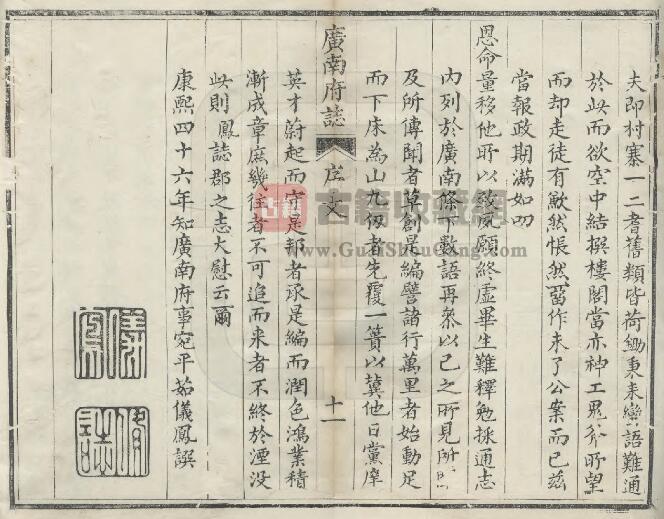 夫即村寨一二耆舊類皆荷鋤秉耒蠻語難通
於此而欲空中結撰樓閣當亦神工鬼斧所望
而却走徒有歉然悵然留作未了公案而已茲
當報政期滿如叨
恩命量移他所以致夙願終虛畢生難釋勉採通志
內列於廣南條下數語再叅以己之所見所
及所傳聞者草創是編譬諸行萬里者始動足
而下床為山九仭者先覆一簣以冀他日黨庠
廣南府誌
序文
十一
英才蔚起而守是邦者承是編而潤色鴻業積
漸成章庶幾往者不可追而来者不終於湮没
此則鳳誌郡之志大慰云爾
康熙四十六年知廣南府事宛平茹儀鳳譔
古籍收藏網
www.GujiShouCang.com